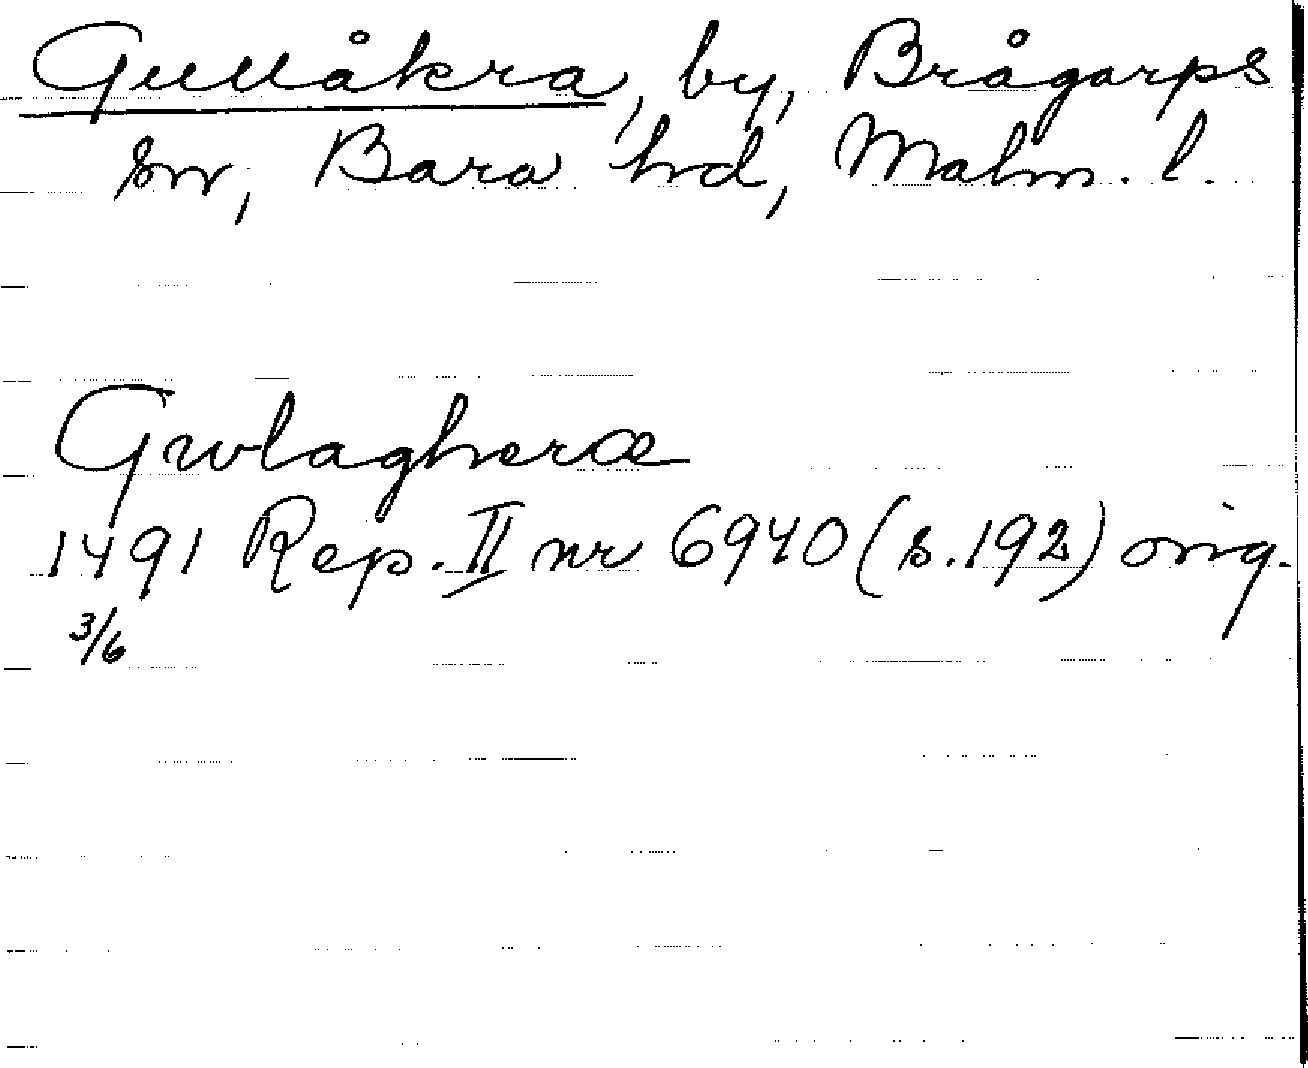 Gullåkra, by, Brågarps
sn, Bara hd, Malm. l.
Gwlagheræ
1491 Rep. II nr 6940 (s. 192) orig.
3/6